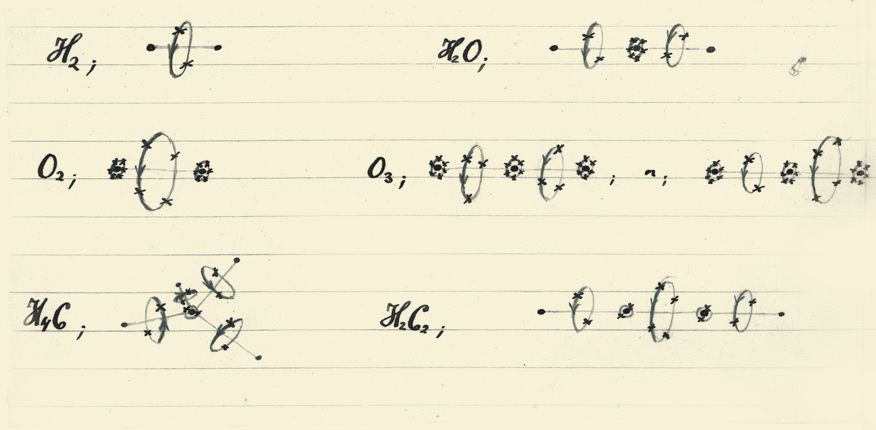 H₂; H₂O;
O₂; O₃; ; n;
H₄C; H₂C₂;